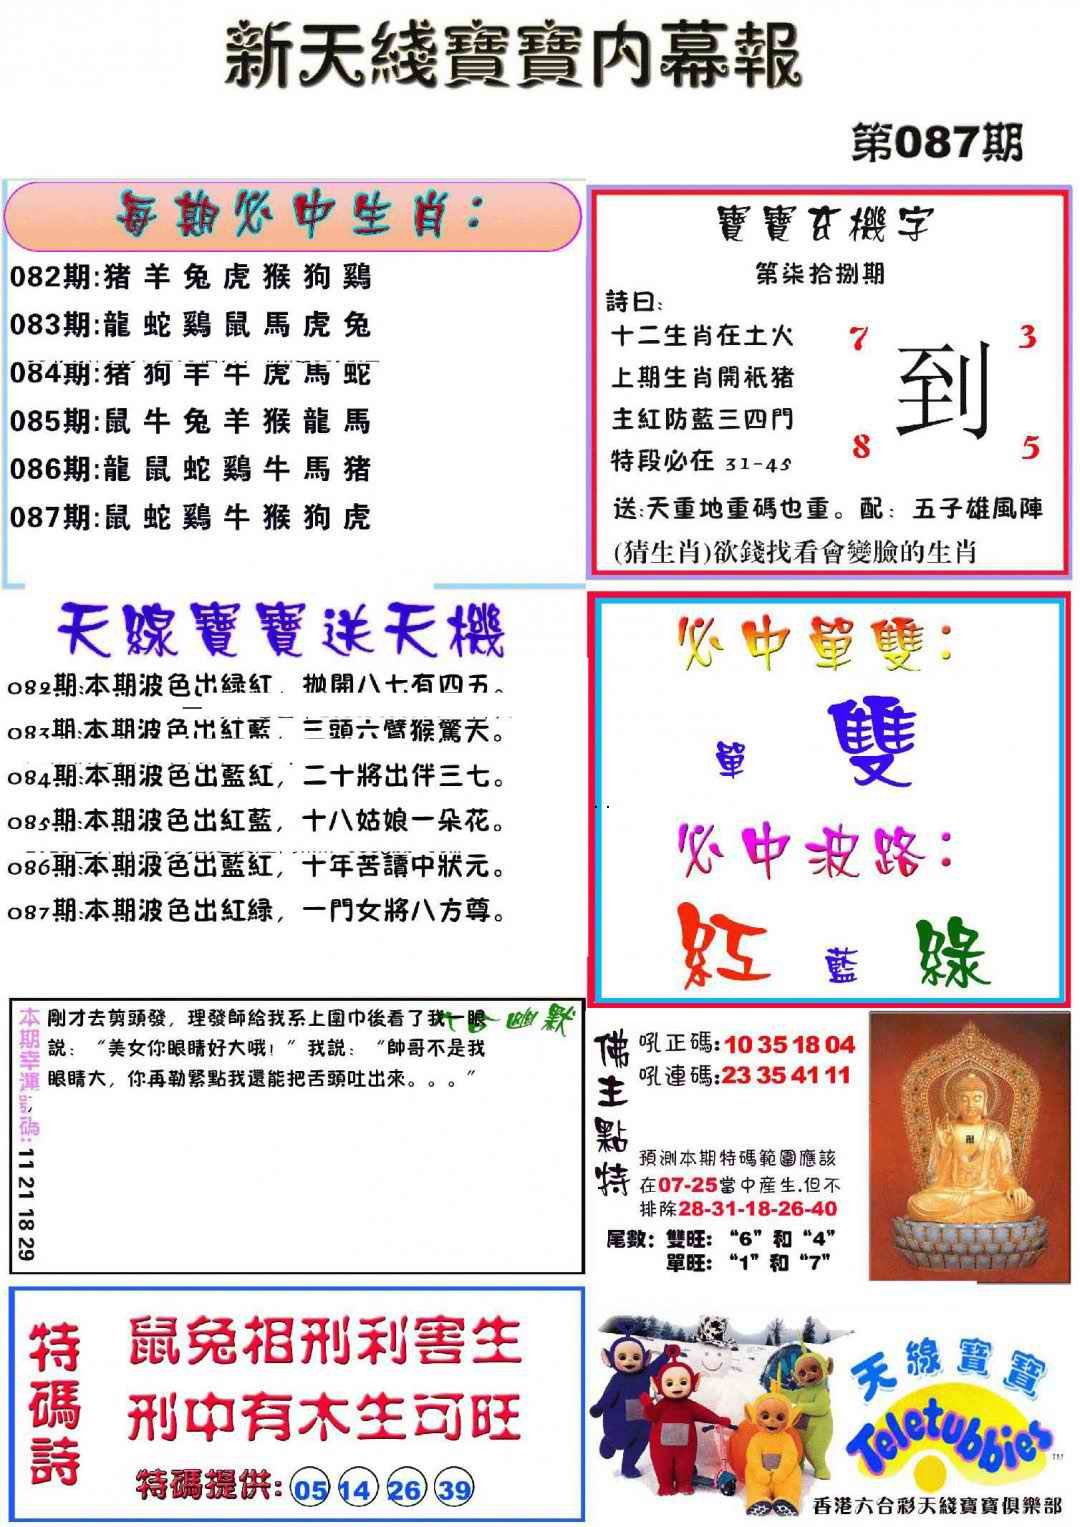 新天綫寶寶内幕報
第087期
每期必中生肖：
082期:猪羊兔虎猴狗鷄
083期:龍蛇鷄鼠馬虎兔
084期:猪狗羊牛虎馬蛇
085期:鼠牛兔羊猴龍馬
086期:龍鼠蛇鷄牛馬猪
087期:鼠蛇鷄牛猴狗虎
寶寶玄機字
第柒拾捌期
詩曰:
十二生肖在土火
上期生肖開祇猪
主紅防藍三四門
特段必在 31-45
7 3
到
8 5
送:天重地重碼也重。配：五子雄風陣
(猜生肖)欲錢找看會變臉的生肖
天線寶寶送天機
082期:本期波色出緑紅，拋開八七有四五。
083期:本期波色出紅藍，三頭六臂猴驚天。
084期:本期波色出藍紅，二十將出伴三七。
085期:本期波色出紅藍，十八姑娘一朵花。
086期:本期波色出藍紅，十年苦讀中狀元。
087期:本期波色出紅緑，一門女將八方尊。
必中單雙：
單 雙
必中波路：
紅 藍 綠
本期幸運號碼: 11 21 18 29
幽默
剛才去剪頭發，理發師給我系上圍巾後看了我一眼
説：“美女你眼睛好大哦！”我説：“帥哥不是我
眼睛大，你再勒緊點我還能把舌頭吐出來。。。”
佛主點特
吼正碼:10 35 18 04
吼連碼:23 35 41 11
預測本期特碼範圍應該
在07-25當中産生.但不
排除28-31-18-26-40
尾數：雙旺：“6”和“4”
單旺：“1”和“7”
特碼詩
鼠兔相刑利害生
刑中有木生可旺
特碼提供: 05 14 26 39
天線寶寶
Teletubbies
TM
香港六合彩天綫寶寶俱樂部